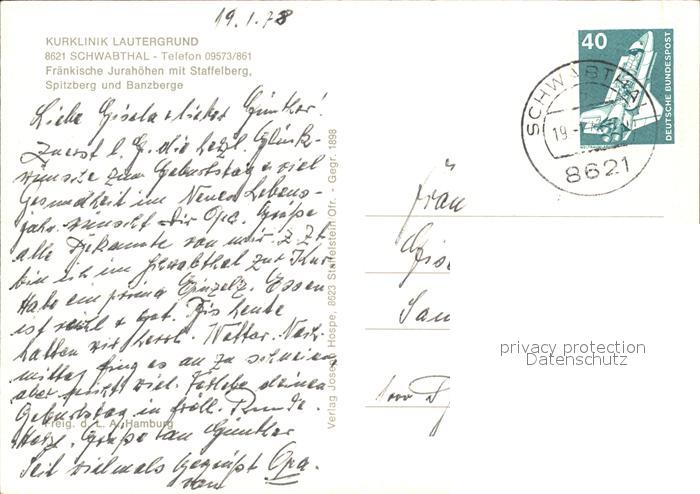 19.1.78
KURKLINIK LAUTERGRUND
8621 SCHWABTHAL - Telefon 09573/861
Fränkische Jurahöhen mit Staffelberg,
Spitzberg und Banzberge
Liebe Gisela & lieber Günther!
Zuerst l. G. die herzl. Glück-
wünsche zum Geburtstag & viel
Gesundheit im Neuen Lebens-
jahr wünscht Dir Opa. Grüße
alle Bekannte von mir. Z. Zt
bin ich im Schwabthal zur Kur
Habe ein prima Einzelz. Essen
ist reichl & gut. Bis heute
hatten wir herrl. Wetter. Nach-
mittag fing es an zu schneien
aber nicht viel. Verlebe deinen
Geburtstag in fröhl. Runde.
Herzl. Grüße an Günther
Seit vielmals gegrüßt Opa.
vom
Freig. d. L. A. Hamburg
Verlag Josef Hospe, 8623 Staffelstein Ofr. - Gegr. 1898
40
DEUTSCHE BUNDESPOST
SCHWABTHAL
19.-
8621
Frau
Gise
San
1000
privacy protection
Datenschutz